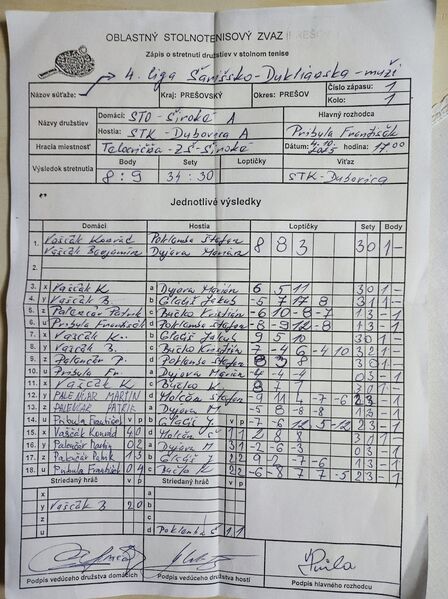 OBLASTNÝ STOLNOTENISOVÝ ZVÄZ PREŠOV
Zápis o stretnutí družstiev v stolnom tenise
Názov súťaže: 4. liga Šarišsko-Duklianska-muži
Kraj: PREŠOVSKÝ Okres: PREŠOV Číslo zápasu: 1
Kolo: 1
Názvy družstiev Domáci: STO-Široké A Hlavný rozhodca
Hostia: STK-Dubovica A Pribula František
Hracia miestnosť Telocvičňa-ZŠ-Široké Dátum: 4.10.2025 hodina: 17.00
Výsledok stretnutia Body Sety Loptičky Víťaz
8:9 34:30 STK-Dubovica
Jednotlivé výsledky
Domáci Hostia Loptičky Sety Body
1. Vaščák Konrád Poklemba Štefan 8 8 3 3 0 1 -
Vaščák Benjamín Dujava Marián
2.
3. x Vaščák K a Dujava Marián 6 5 11 3 0 1 -
4. y Vaščák B. b Gladiš Jakub -5 7 17 8 3 1 1 -
5. z Palenčár Patrik c Bučko Kristián -6 10 -8 -7 1 3 - 1
6. u Pribula František d Poklemba Štefan -8 -9 12 -8 1 3 - 1
7. x Vaščák K. b Gladiš Jakub 9 5 10 3 0 1 -
8. y Vaščák B c Bučko Kristián
9. z Palenčár P. d Poklemba Štefan
10. u Pribula Fr. a Dujava Marián
11. x Vaščák K c Bučko K. 8 7 7
12. y PALENČÁR MARTIN d Molčan Štefan -9 11 4 -7 -6 2 3 - 1
13. z PALENČÁR PATRIK a Dujava M -5 8 -8 -8 1 3 - 1
14. u Pribula František v p b Gladiš J v p -7 -6 12 5 -12 2 3 - 1
15. x Vaščák Konrád 4 0 d Molčan Š 1 1 2 8 8 3 0 1 -
16. y Palenčár Martin a Dujava M 3 1 -2 -6 -3 0 3 - 1
17. z Palenčár Patrik 1 3 b Gladiš J 2 2 9 -2 -7 -6 1 3 - 1
18. u Pribula František 0 4 c Bučko K 2 2 -6 -8 7 7 -5 2 3 - 1
Striedaný hráč v p Striedaný hráč v p
x a
y Vaščák B 2 0 b
z c
u d Poklemba Š 1 1
Podpis vedúceho družstva domácich Podpis vedúceho družstva hostí Podpis hlavného rozhodcu